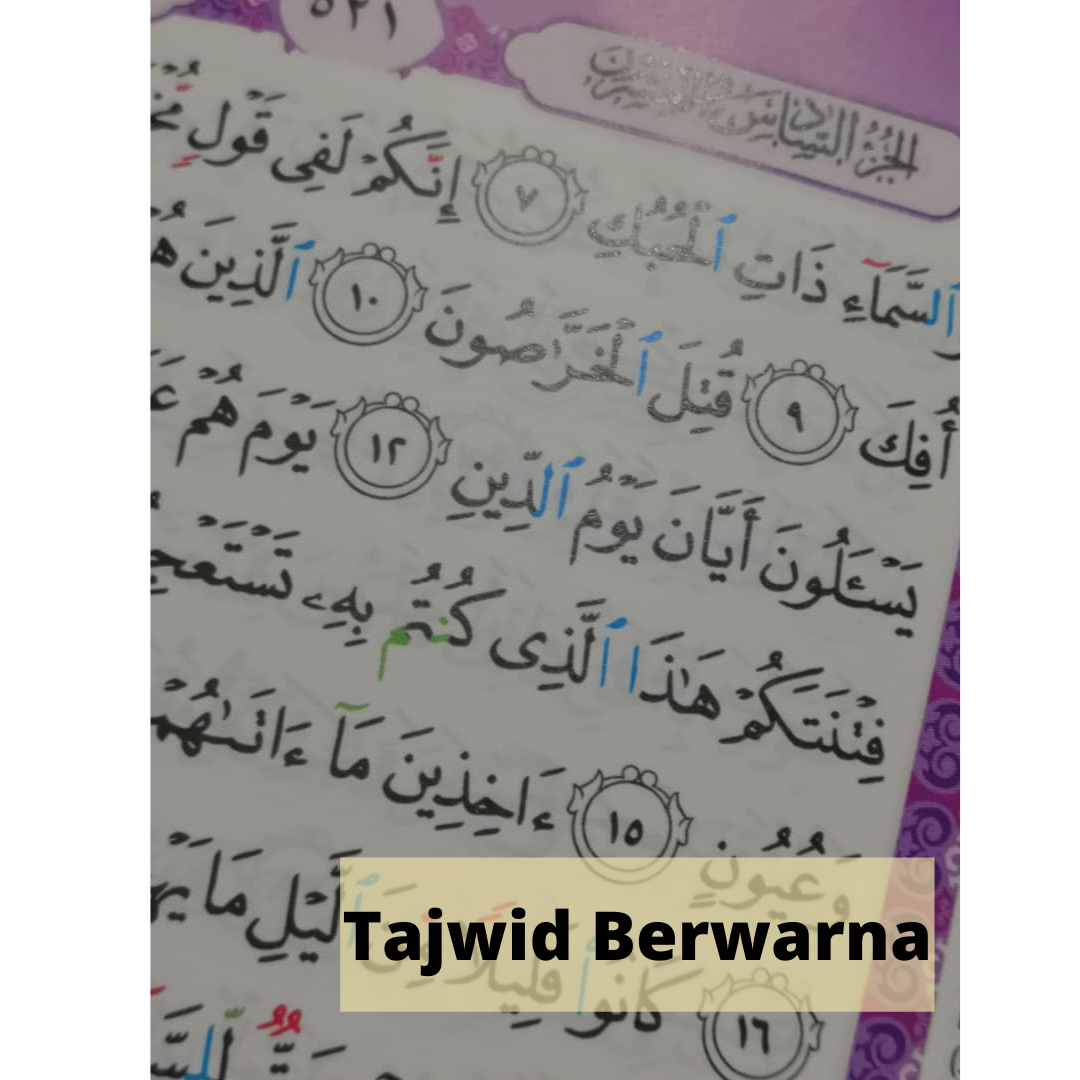 ٥٢١
الجزء السادس والعشرون
ٱلسَّمَآءِ ذَاتِ ٱلْحُبُكِ ٧ إِنَّكُمْ لَفِى قَوْلٍ
أُفِكَ ٩ قُتِلَ ٱلْخَرَّٰصُونَ ١٠ ٱلَّذِينَ
يَسْـَٔلُونَ أَيَّانَ يَوْمُ ٱلدِّينِ ١٢ يَوْمَ هُمْ
فِتْنَتَكُمْ هَـٰذَا ٱلَّذِى كُنتُم بِهِۦ
وَعُيُونٍ ١٥ ءَاخِذِينَ مَآ ءَاتَىٰهُمْ
١٦ كَانُوا۟ قَلِيلًا مِّنَ ٱلَّيْلِ مَا
Tajwid Berwarna